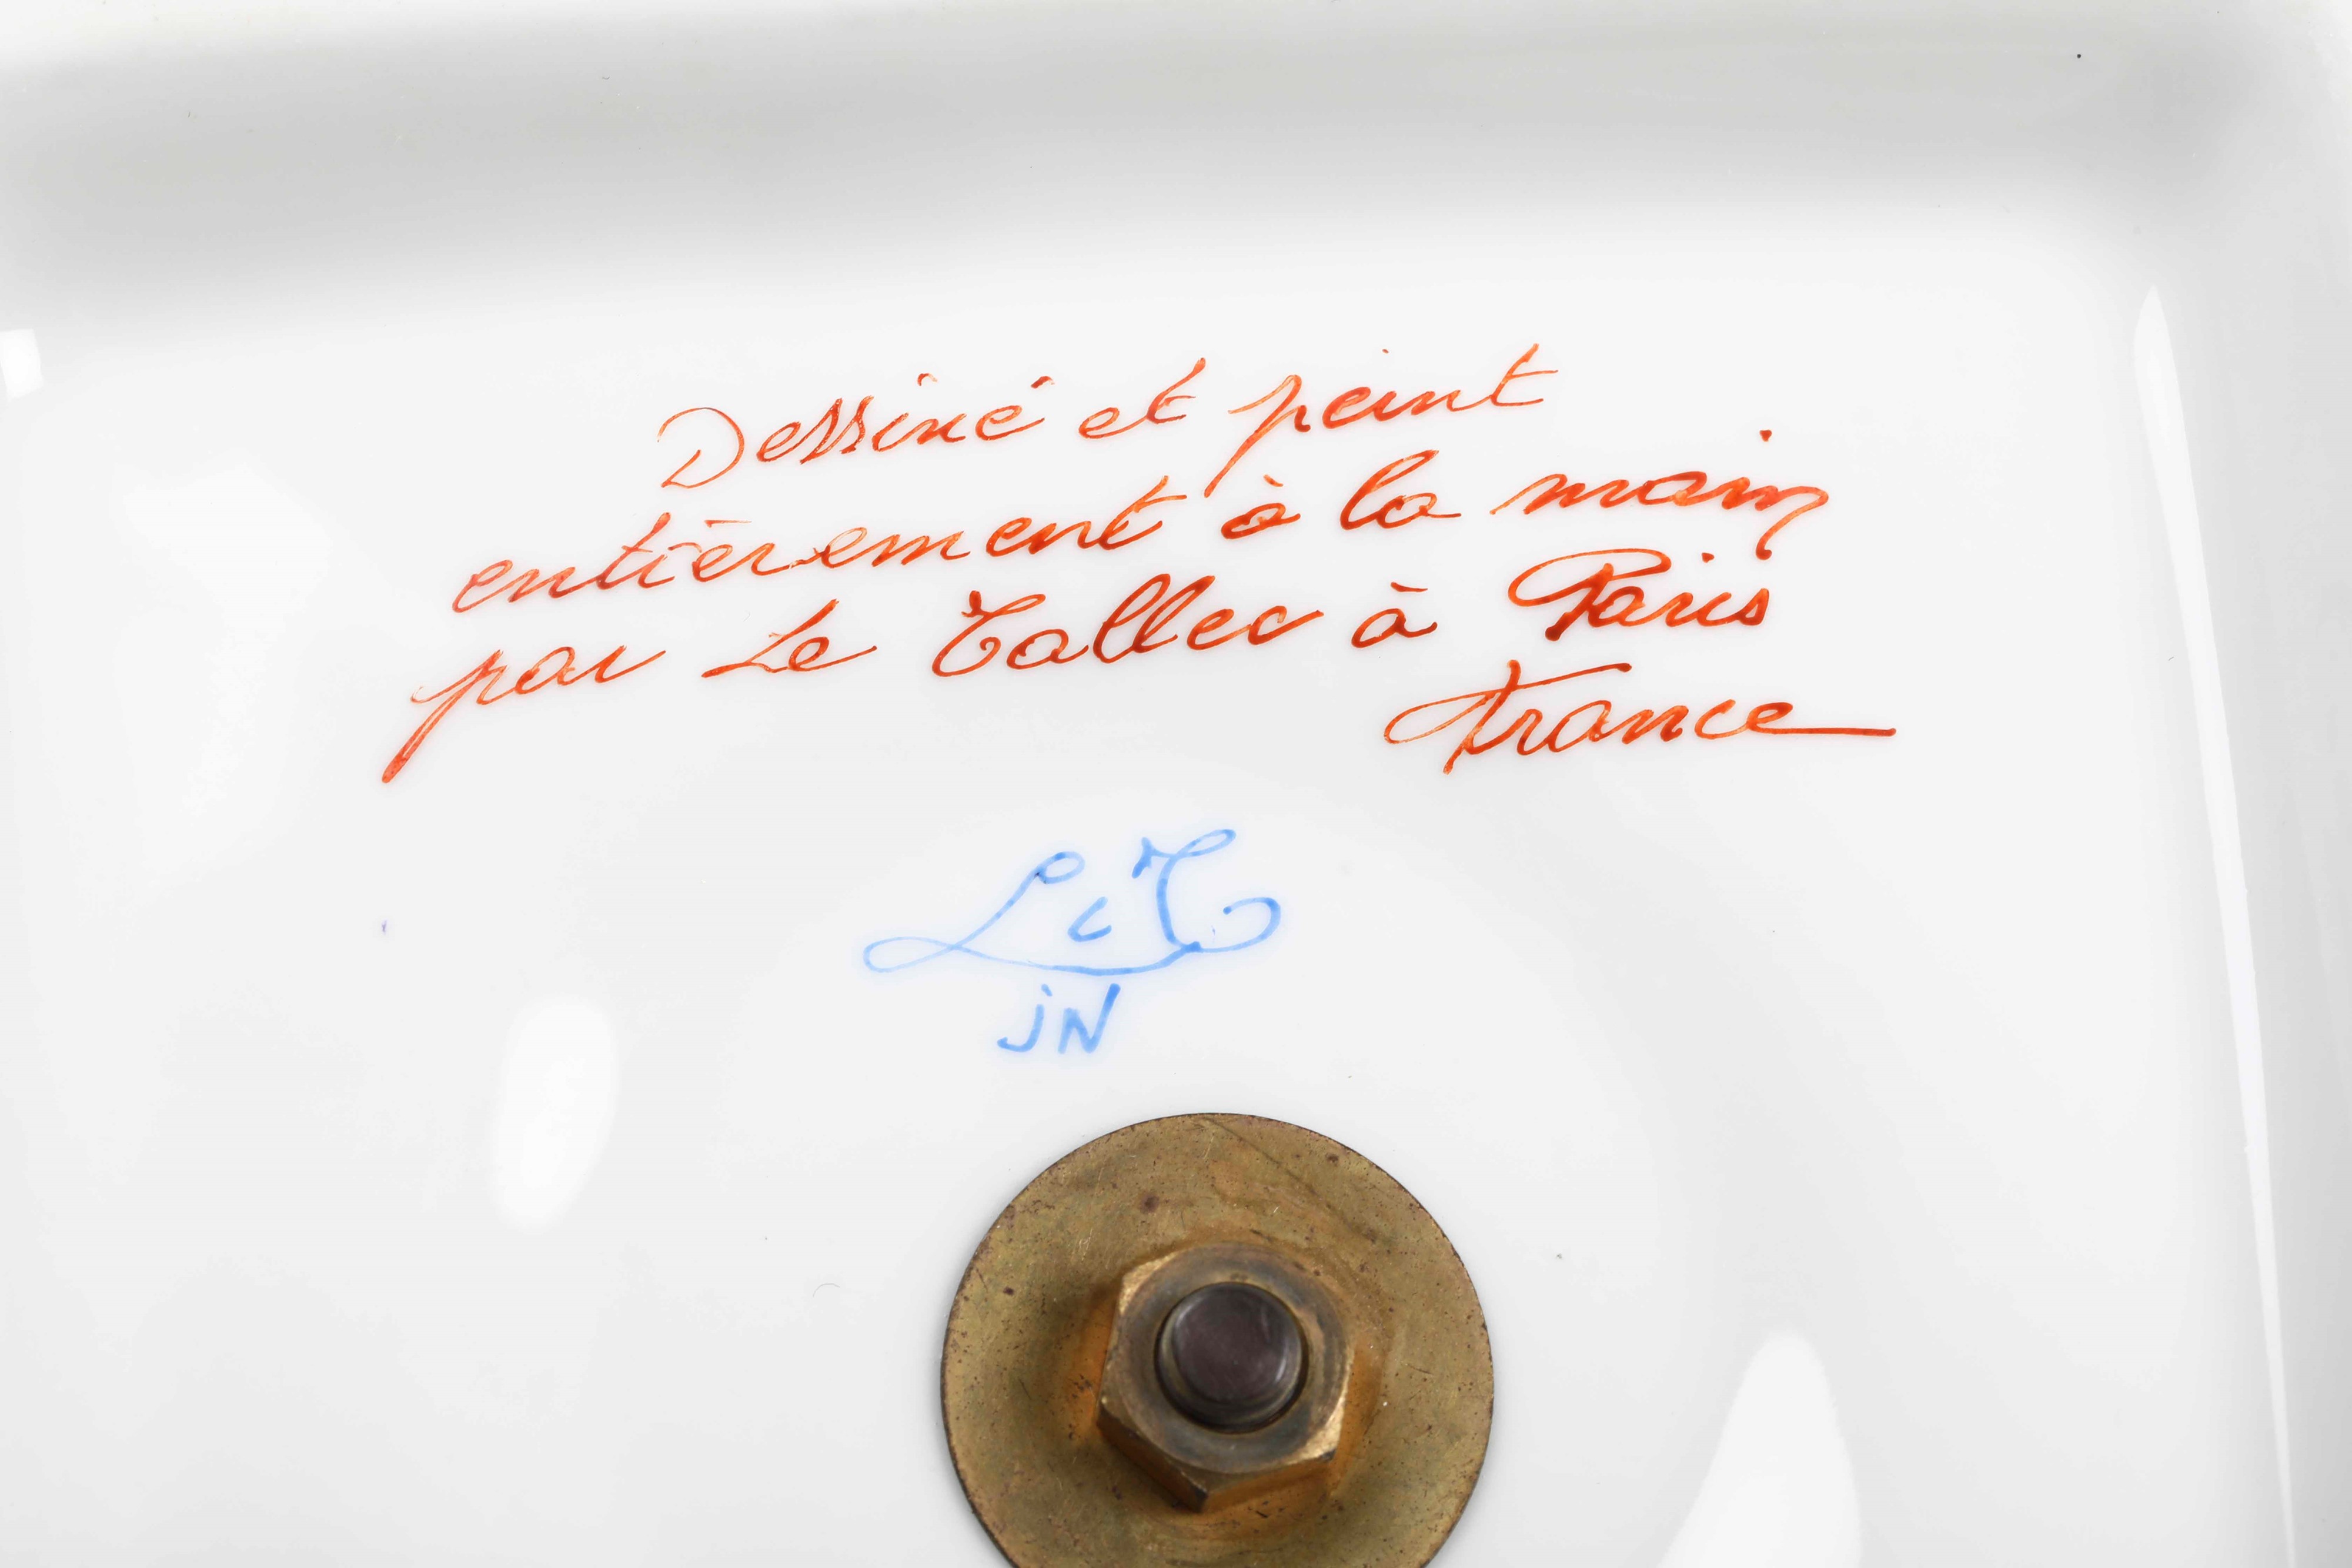 Dessiné et peint
entièrement à la main
par Le Tallec à Paris
France
LeT
jN